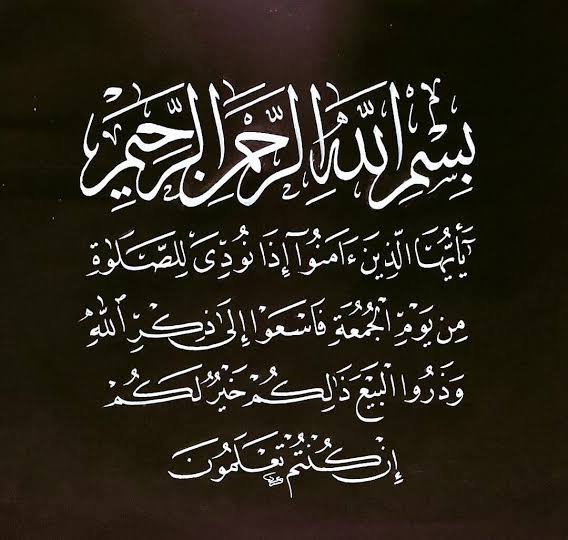 بِسْمِ اللَّهِ الرَّحْمَٰنِ الرَّحِيمِ
يَٰٓأَيُّهَا الَّذِينَ ءَامَنُوٓا إِذَا نُودِىَ لِلصَّلَوٰةِ
مِن يَوْمِ الْجُمُعَةِ فَاسْعَوْا إِلَىٰ ذِكْرِ اللَّهِ
وَذَرُوا الْبَيْعَ ذَٰلِكُمْ خَيْرٌ لَكُمْ
إِنْ كُنْتُمْ تَعْلَمُونَ